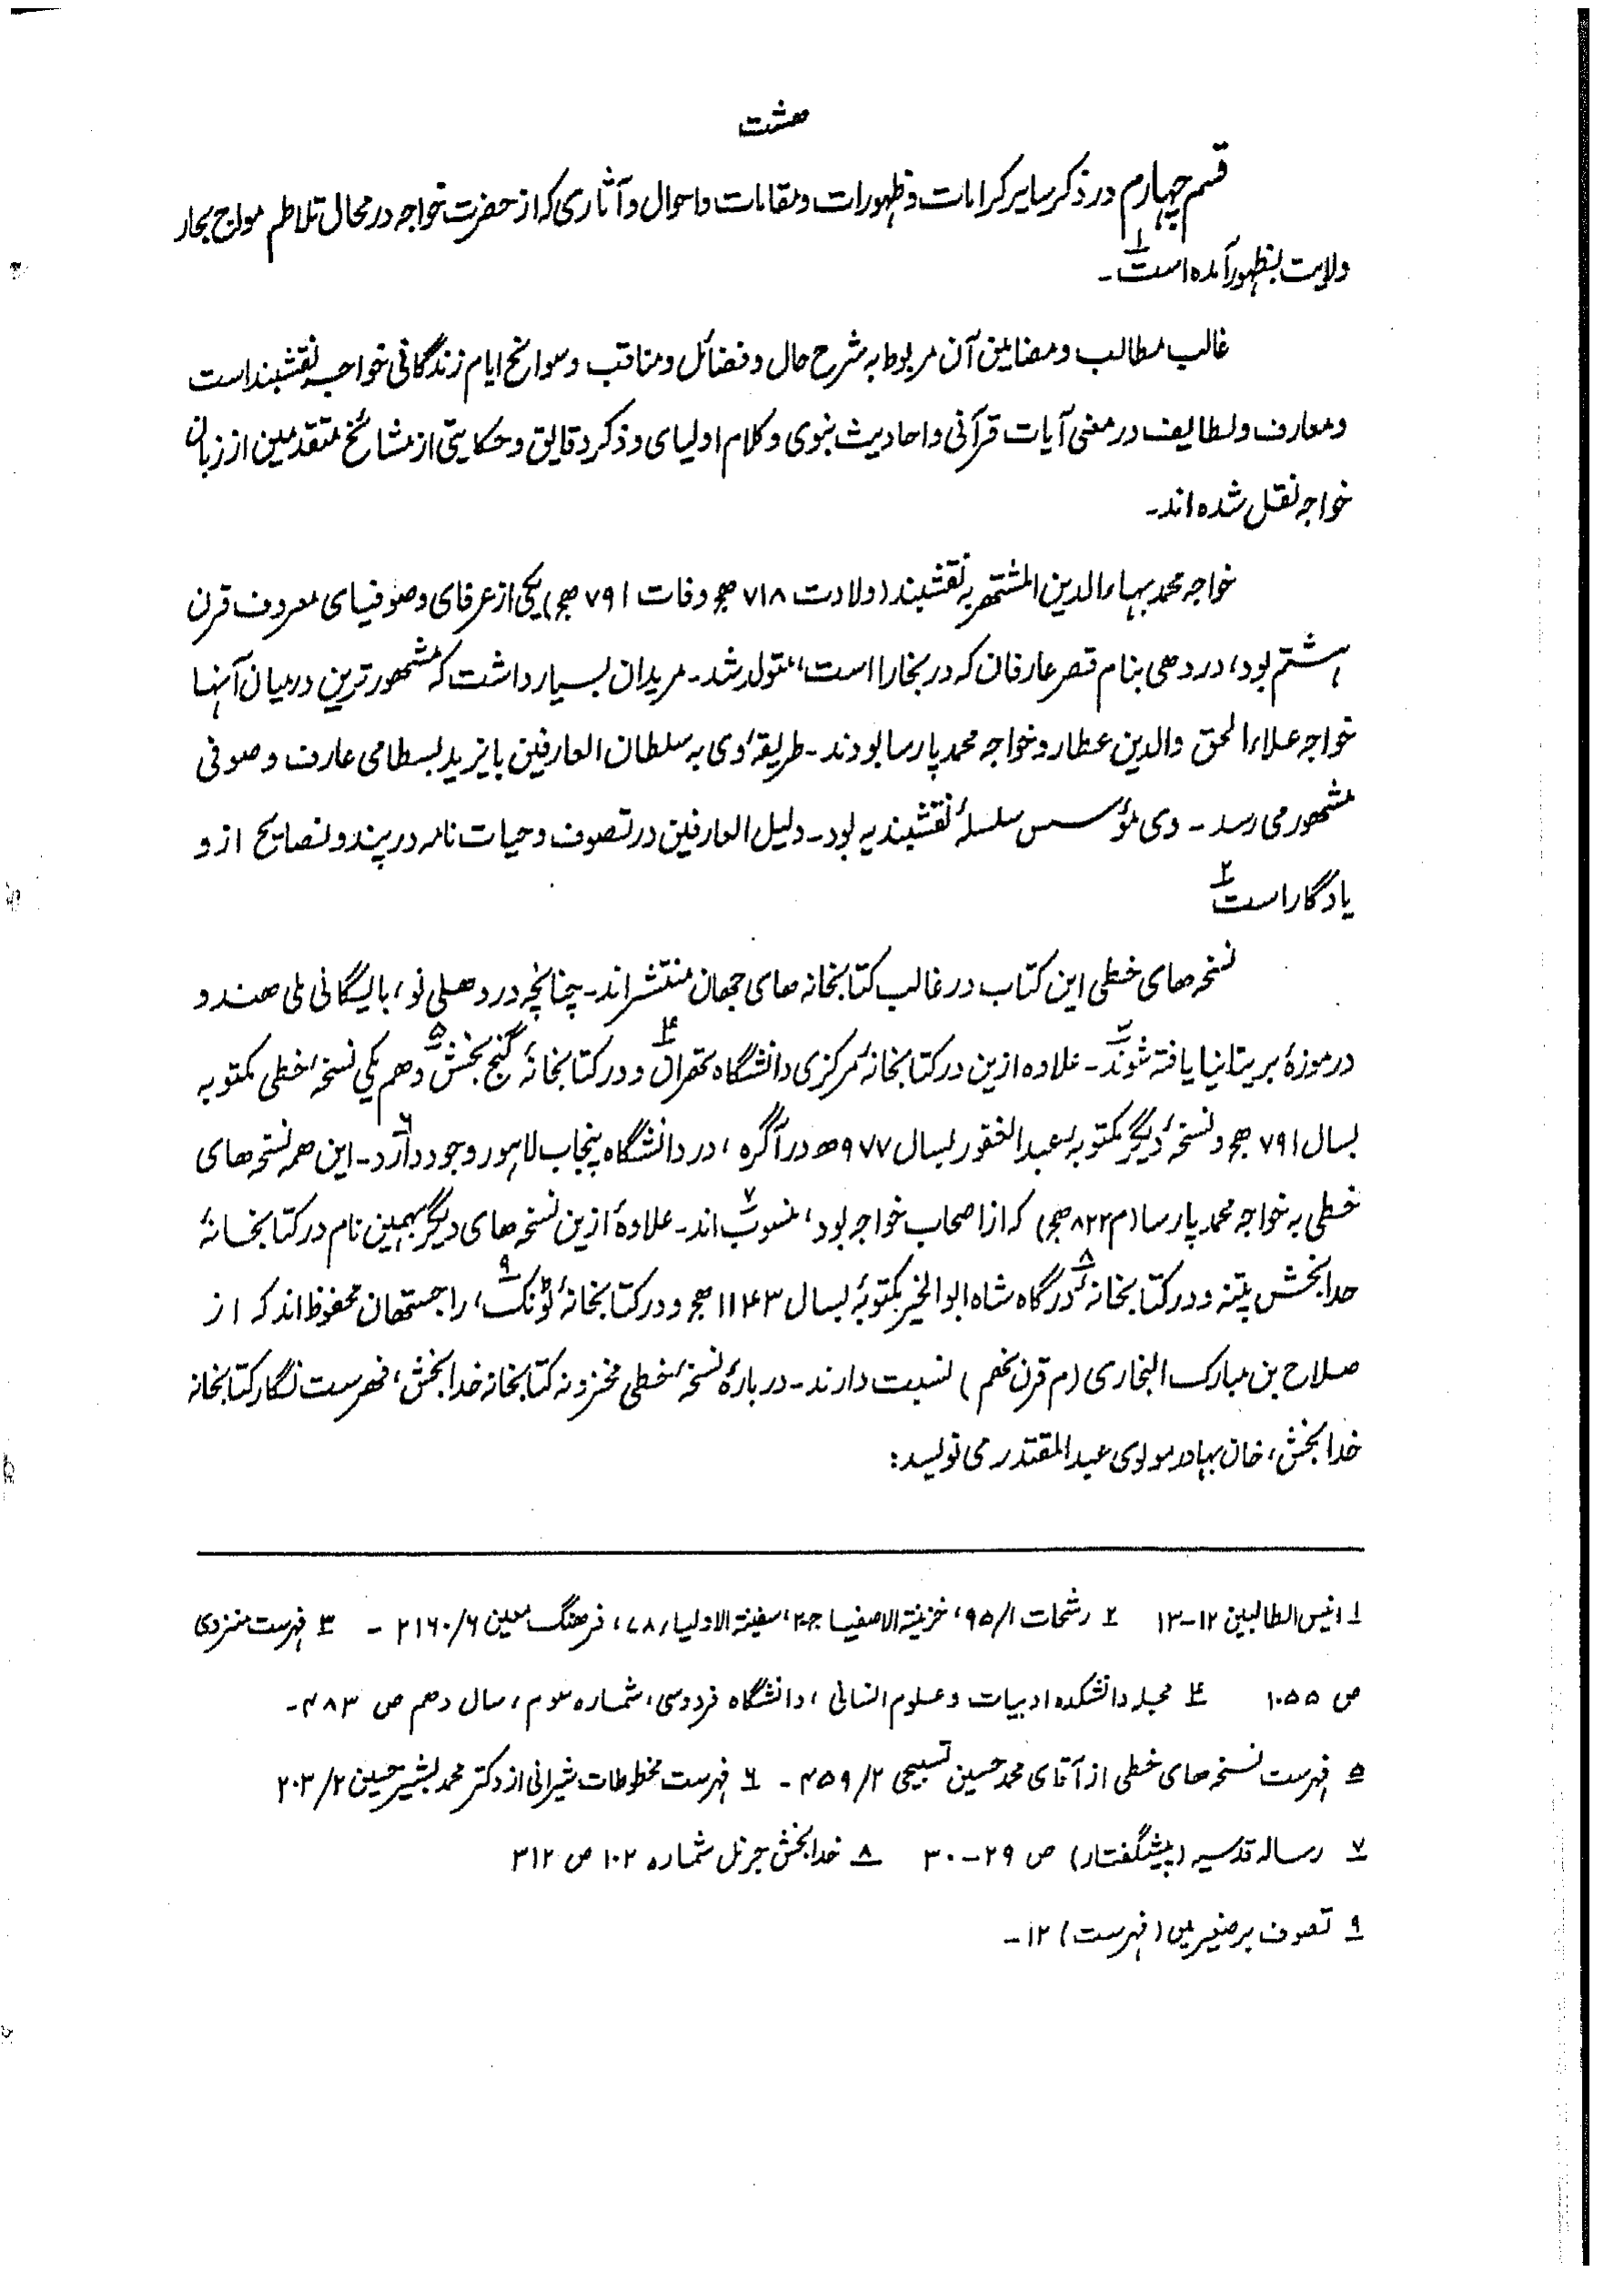 هشت
قسم چهارم در ذکر سایر کرامات و ظهورات و مقامات و احوال و آثاری که از حضرت خواجه در محال تلاطم مواج بحار
ولایت بظهور آمده است۱۔
غالب مطالب و مضامین آن مربوط به شرح حال و فضائل و مناقب و سوانح ایام زندگانی خواجه نقشبند است
و معارف و لطایف در معنی آیات قرآنی و احادیث نبوی و کلام اولیای و ذکر دقایق و حکایتی از مشائخ متقدمین از زبان
خواجه نقل شده اند۔
خواجه محمد بهاء الدین المشتهر به نقشبند (ولادت ۷۱۸ هج وفات ۷۹۱ هج) یکی از عرفای و صوفیای معروف قرن
هشتم بود، در دهی بنام قصر عارفان که در بخارا است، متولد شد۔ مریدان بسیار داشت که مشهور ترین درمیان آنها
خواجه علاء الحق والدین عطار و خواجه محمد پارسا بودند۔ طریقهٔ وی به سلطان العارفین بایزید بسطامی عارف و صوفی
مشهور می رسد۔ وی مؤسس سلسلهٔ نقشبندیه بود۔ دلیل العارفین در تصوف و حیات نامه در پند و نصایح از و
یادگار است۲
نسخه های خطی این کتاب در غالب کتابخانه های جهان منتشر اند۔ چنانچه در دهلی نو، بایگانی ملی هند و
در موزهٔ بریتانیا یافته شوند۳۔ علاوه ازین در کتابخانهٔ مرکزی دانشگاه تهران۴ و در کتابخانهٔ گنج بخش۵ و هم یکی نسخهٔ خطی مکتوبه
بسال ۷۹۱ هج و نسخهٔ دیگر مکتوبه عبدالغفور بسال ۹۷۷ھ در آگره، در دانشگاه پنجاب لاهور وجود دارد۶۔ این همه نسخه های
خطی به خواجه محمد پارسا (م ۸۲۲ هج) که از اصحاب خواجه بود، منسوب۷ اند۔ علاوهٔ ازین نسخه های دیگر بهمین نام در کتابخانهٔ
خدا بخش پتنه و در کتابخانهٔ۸ درگاه شاه ابوالخیر مکتوبهٔ بسال ۱۱۴۳ هج و در کتابخانهٔ ٹونک۹، راجستهان محفوظ اند که از
صلاح بن مبارک البخاری (م قرن نهم) نسبت دارند۔ دربارهٔ نسخهٔ خطی مخزونه کتابخانه خدا بخش، فهرست نگار کتابخانه
خدا بخش، خان بهادر مولوی عبدالمقتدر می نویسد:
۱ انیس الطالبین ۱۲–۱۳ ۲ رشحات ۱/۹۵، خزینة الاصفیا ج۲، سفینة الاولیاء ۷۸، فرهنگ معین ۶/۲۱۶۰ ۔ ۳ فهرست منزوی
ص ۱۰۵۵ ۴ مجله دانشکده ادبیات و علوم انسانی، دانشگاه فردوسی، شماره سوم، سال دهم ص ۴۸۳۔
۵ فهرست نسخه های خطی از آقای محمد حسین تسبیحی ۲/۴۵۹ ۔ ۶ فهرست مخطوطات شیرانی از دکتر محمد بشیر حسین ۲/۲۰۳
۷ رساله قدسیه (پیشگفتار) ص ۲۹–۳۰ ۸ خدا بخش جرنل شماره ۱۰۲ ص ۳۱۲
۹ تصوف برصغیر میں (فهرست) ۱۲۔